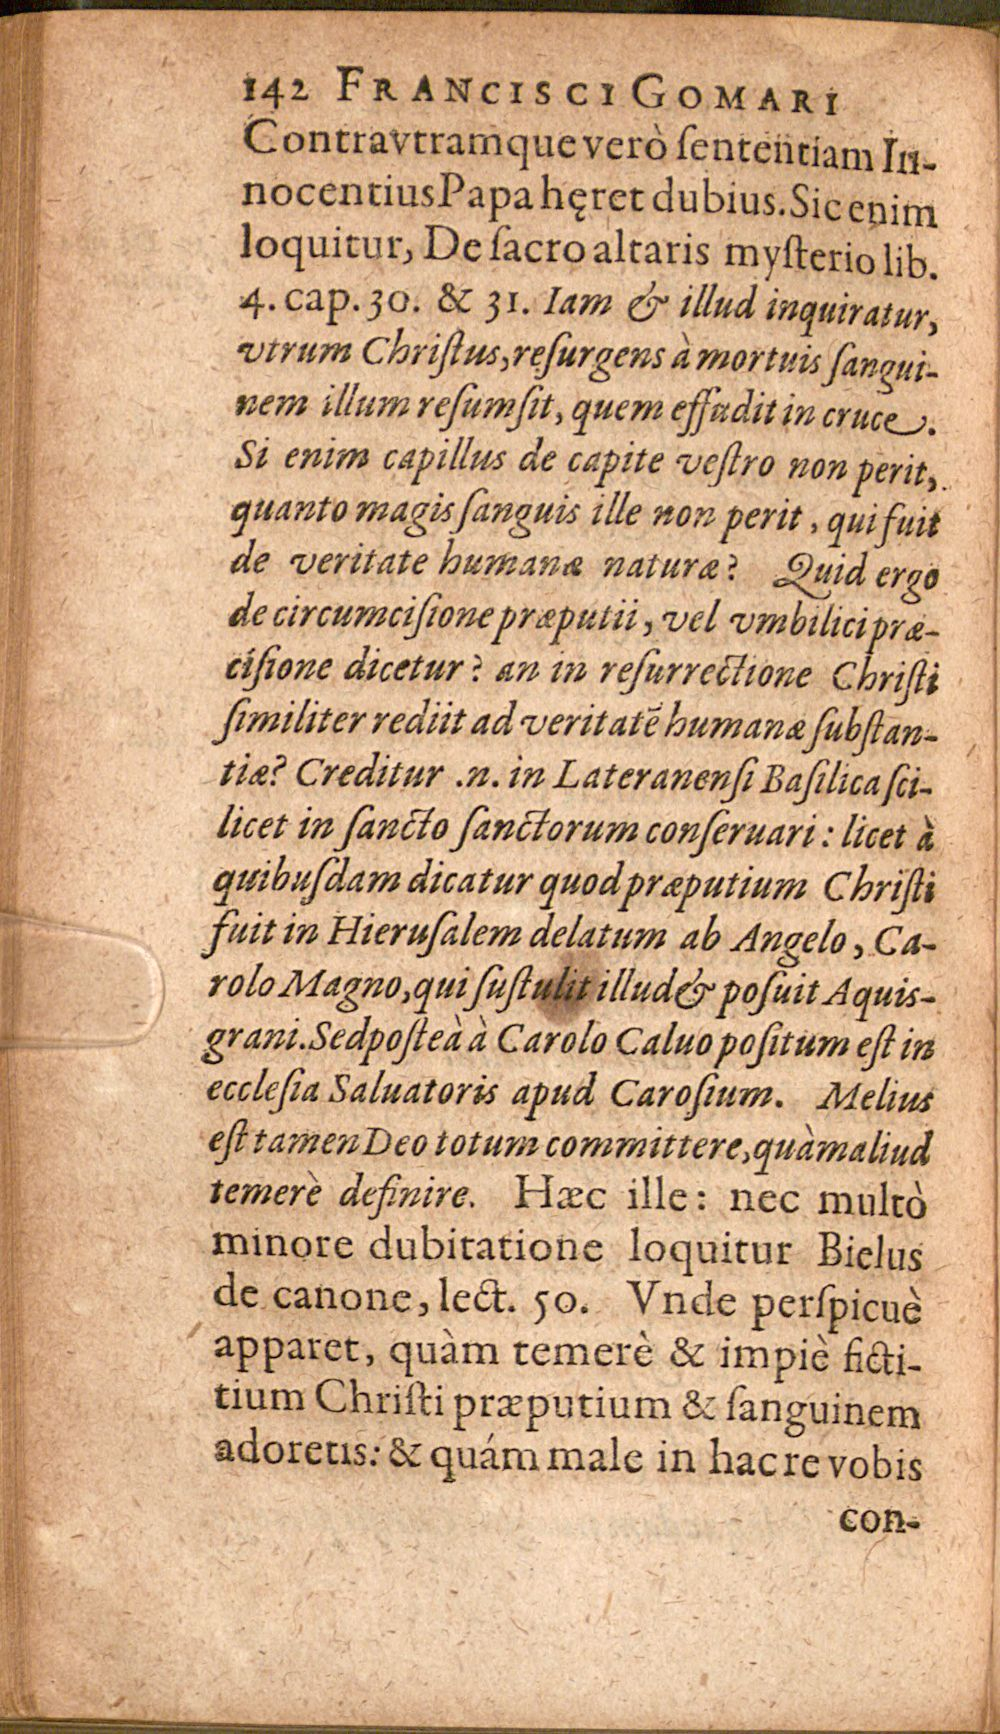 142 FRANCISCI GOMARI
Contra vtramque verò ſententiam In-
nocentius Papa hęret dubius. Sic enim
loquitur, De ſacro altaris myſterio lib.
4. cap. 30. & 31. Iam & illud inquiratur,
vtrum Chriſtus, reſurgens à mortuis ſangui-
nem illum reſumſit, quem effudit in cruce.
Si enim capillus de capite veſtro non perit,
quanto magis ſanguis ille non perit, qui fuit
de veritate humanæ naturæ? Quid ergo
de circumciſione præputii, vel vmbilici præ-
ciſione dicetur? an in reſurrectione Chriſti
ſimiliter rediit ad veritatē humanæ ſubſtan-
tiæ? Creditur .n. in Lateranenſi Baſilica ſci-
licet in ſancto ſanctorum conſeruari: licet à
quibuſdam dicatur quod præputium Chriſti
fuit in Hieruſalem delatum ab Angelo, Ca-
rolo Magno, qui ſuſtulit illud & poſuit Aquis-
grani. Sed poſteà à Carolo Caluo poſitum eſt in
eccleſia Saluatoris apud Caroſium. Melius
eſt tamen Deo totum committere, quàm aliud
temerè definire. Hæc ille: nec multò
minore dubitatione loquitur Bielus
de canone, lect. 50. Vnde perſpicuè
apparet, quàm temerè & impiè ficti-
tium Chriſti præputium & ſanguinem
adoretis: & quám male in hac re vobis
con-